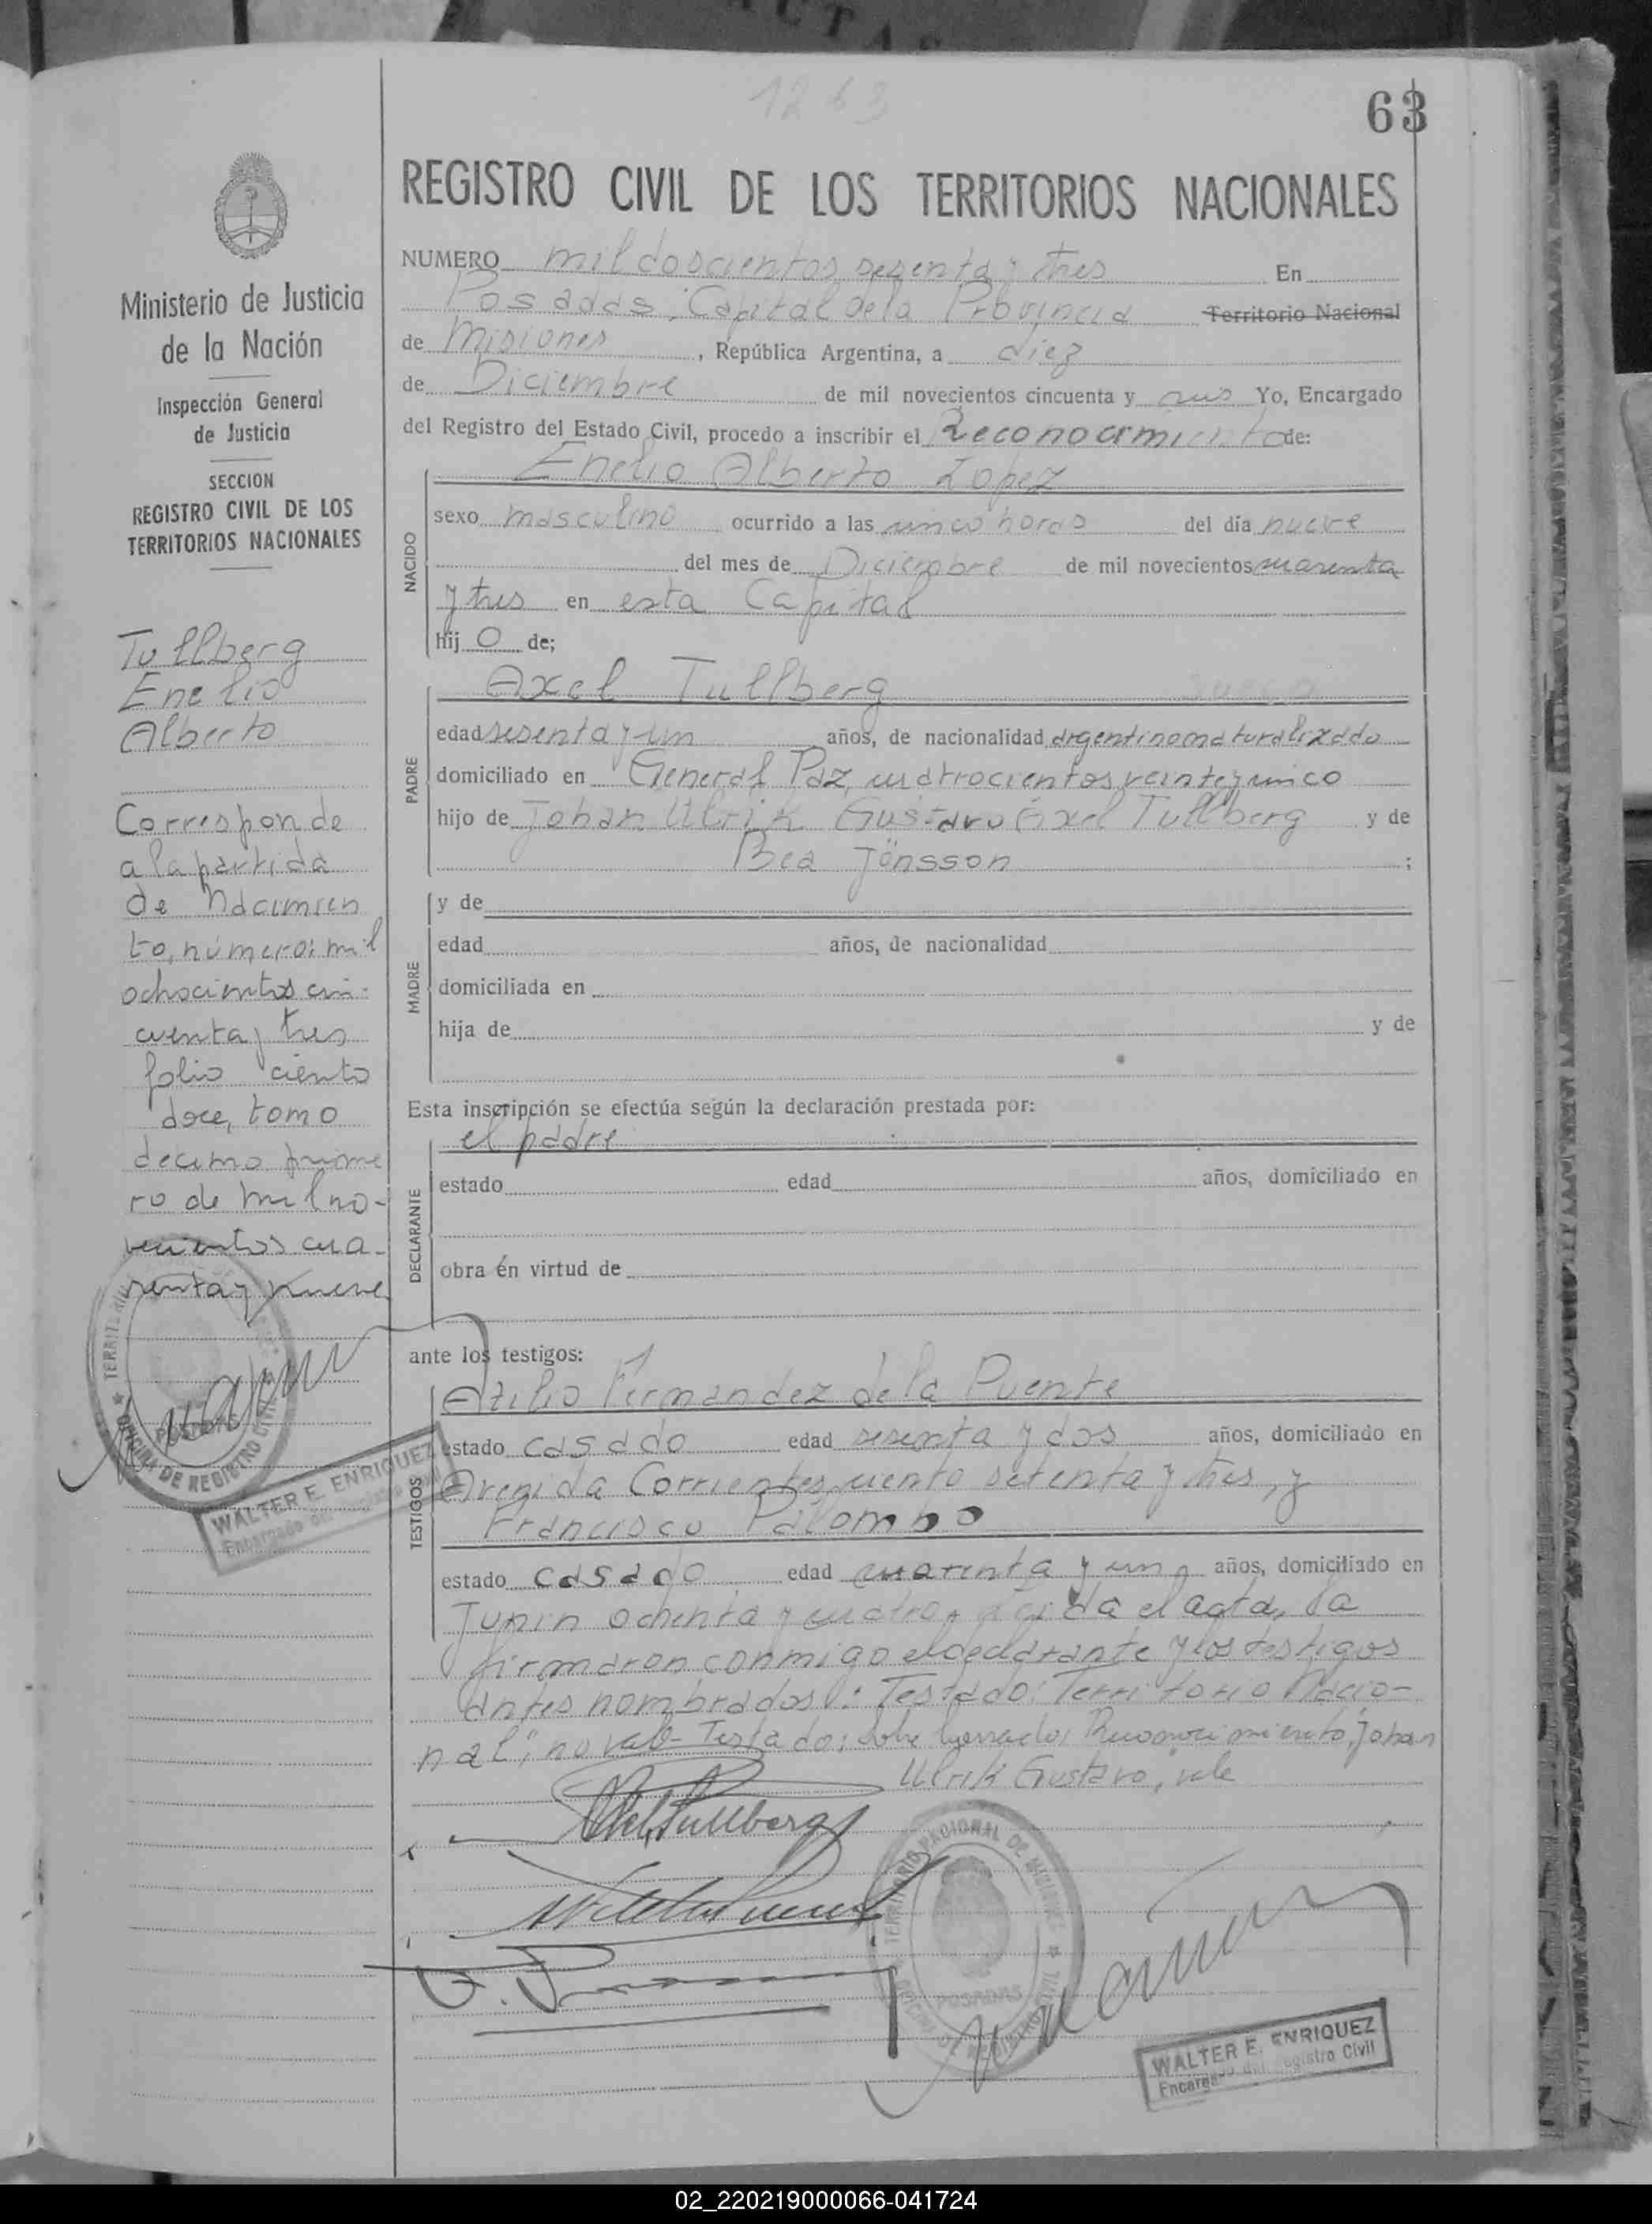 1263
63
REGISTRO CIVIL DE LOS TERRITORIOS NACIONALES
NUMERO mil doscientos sesenta y tres En
Posadas, Capital de la Provincia Territorio Nacional
de Misiones, República Argentina, a diez
de Diciembre de mil novecientos cincuenta y seis Yo, Encargado
del Registro del Estado Civil, procedo a inscribir el Reconocimiento de:
Enelio Alberto Lopez
NACIDO
sexo masculino ocurrido a las cinco horas del día nueve
del mes de Diciembre de mil novecientos cuarenta
y tres en esta Capital
hij o de;
Axel Tullberg
PADRE
edad sesenta y un años, de nacionalidad argentino naturalizado
domiciliado en General Paz, cuatrocientos veinticinco
hijo de Johan Ulrik Gustavo Axel Tullberg y de
Bea Jönsson ;
y de
MADRE
edad años, de nacionalidad
domiciliada en
hija de y de
Esta inscripción se efectúa según la declaración prestada por:
el padre
DECLARANTE
estado edad años, domiciliado en
obra én virtud de
ante los testigos:
Atilio Fernandez de la Puente
TESTIGOS
estado casado edad sesenta y dos años, domiciliado en
Avenida Corrientes, ciento setenta y tres, y
Francisco Palombo
estado casado edad cuarenta y un años, domiciliado en
Junin ochenta y cuatro, leida el acta, la
firmaron conmigo el declarante y los testigos
antes nombrados: Testado: Territorio Nacio-
nal", no vale- Testado: sobre borrado: Reconocimiento, Johan
Ulrik Gustavo, vale
Axel Tullberg
WALTER E. ENRIQUEZ
Encargado del Registro Civil
Ministerio de Justicia
de la Nación
Inspección General
de Justicia
SECCION
REGISTRO CIVIL DE LOS
TERRITORIOS NACIONALES
Tullberg
Enelio
Alberto
Corresponde
a la partida
de Nacimien
to, número: mil
ochocientos cin-
cuenta y tres
folio ciento
doce, tomo
decimo prime
ro de mil no-
vecientos cua-
renta y nueve
OFICINA DE REGISTRO CIVIL
POSADAS
WALTER E. ENRIQUEZ
TERRITORIO NACIONAL DE MISIONES
POSADAS
02_220219000066-041724